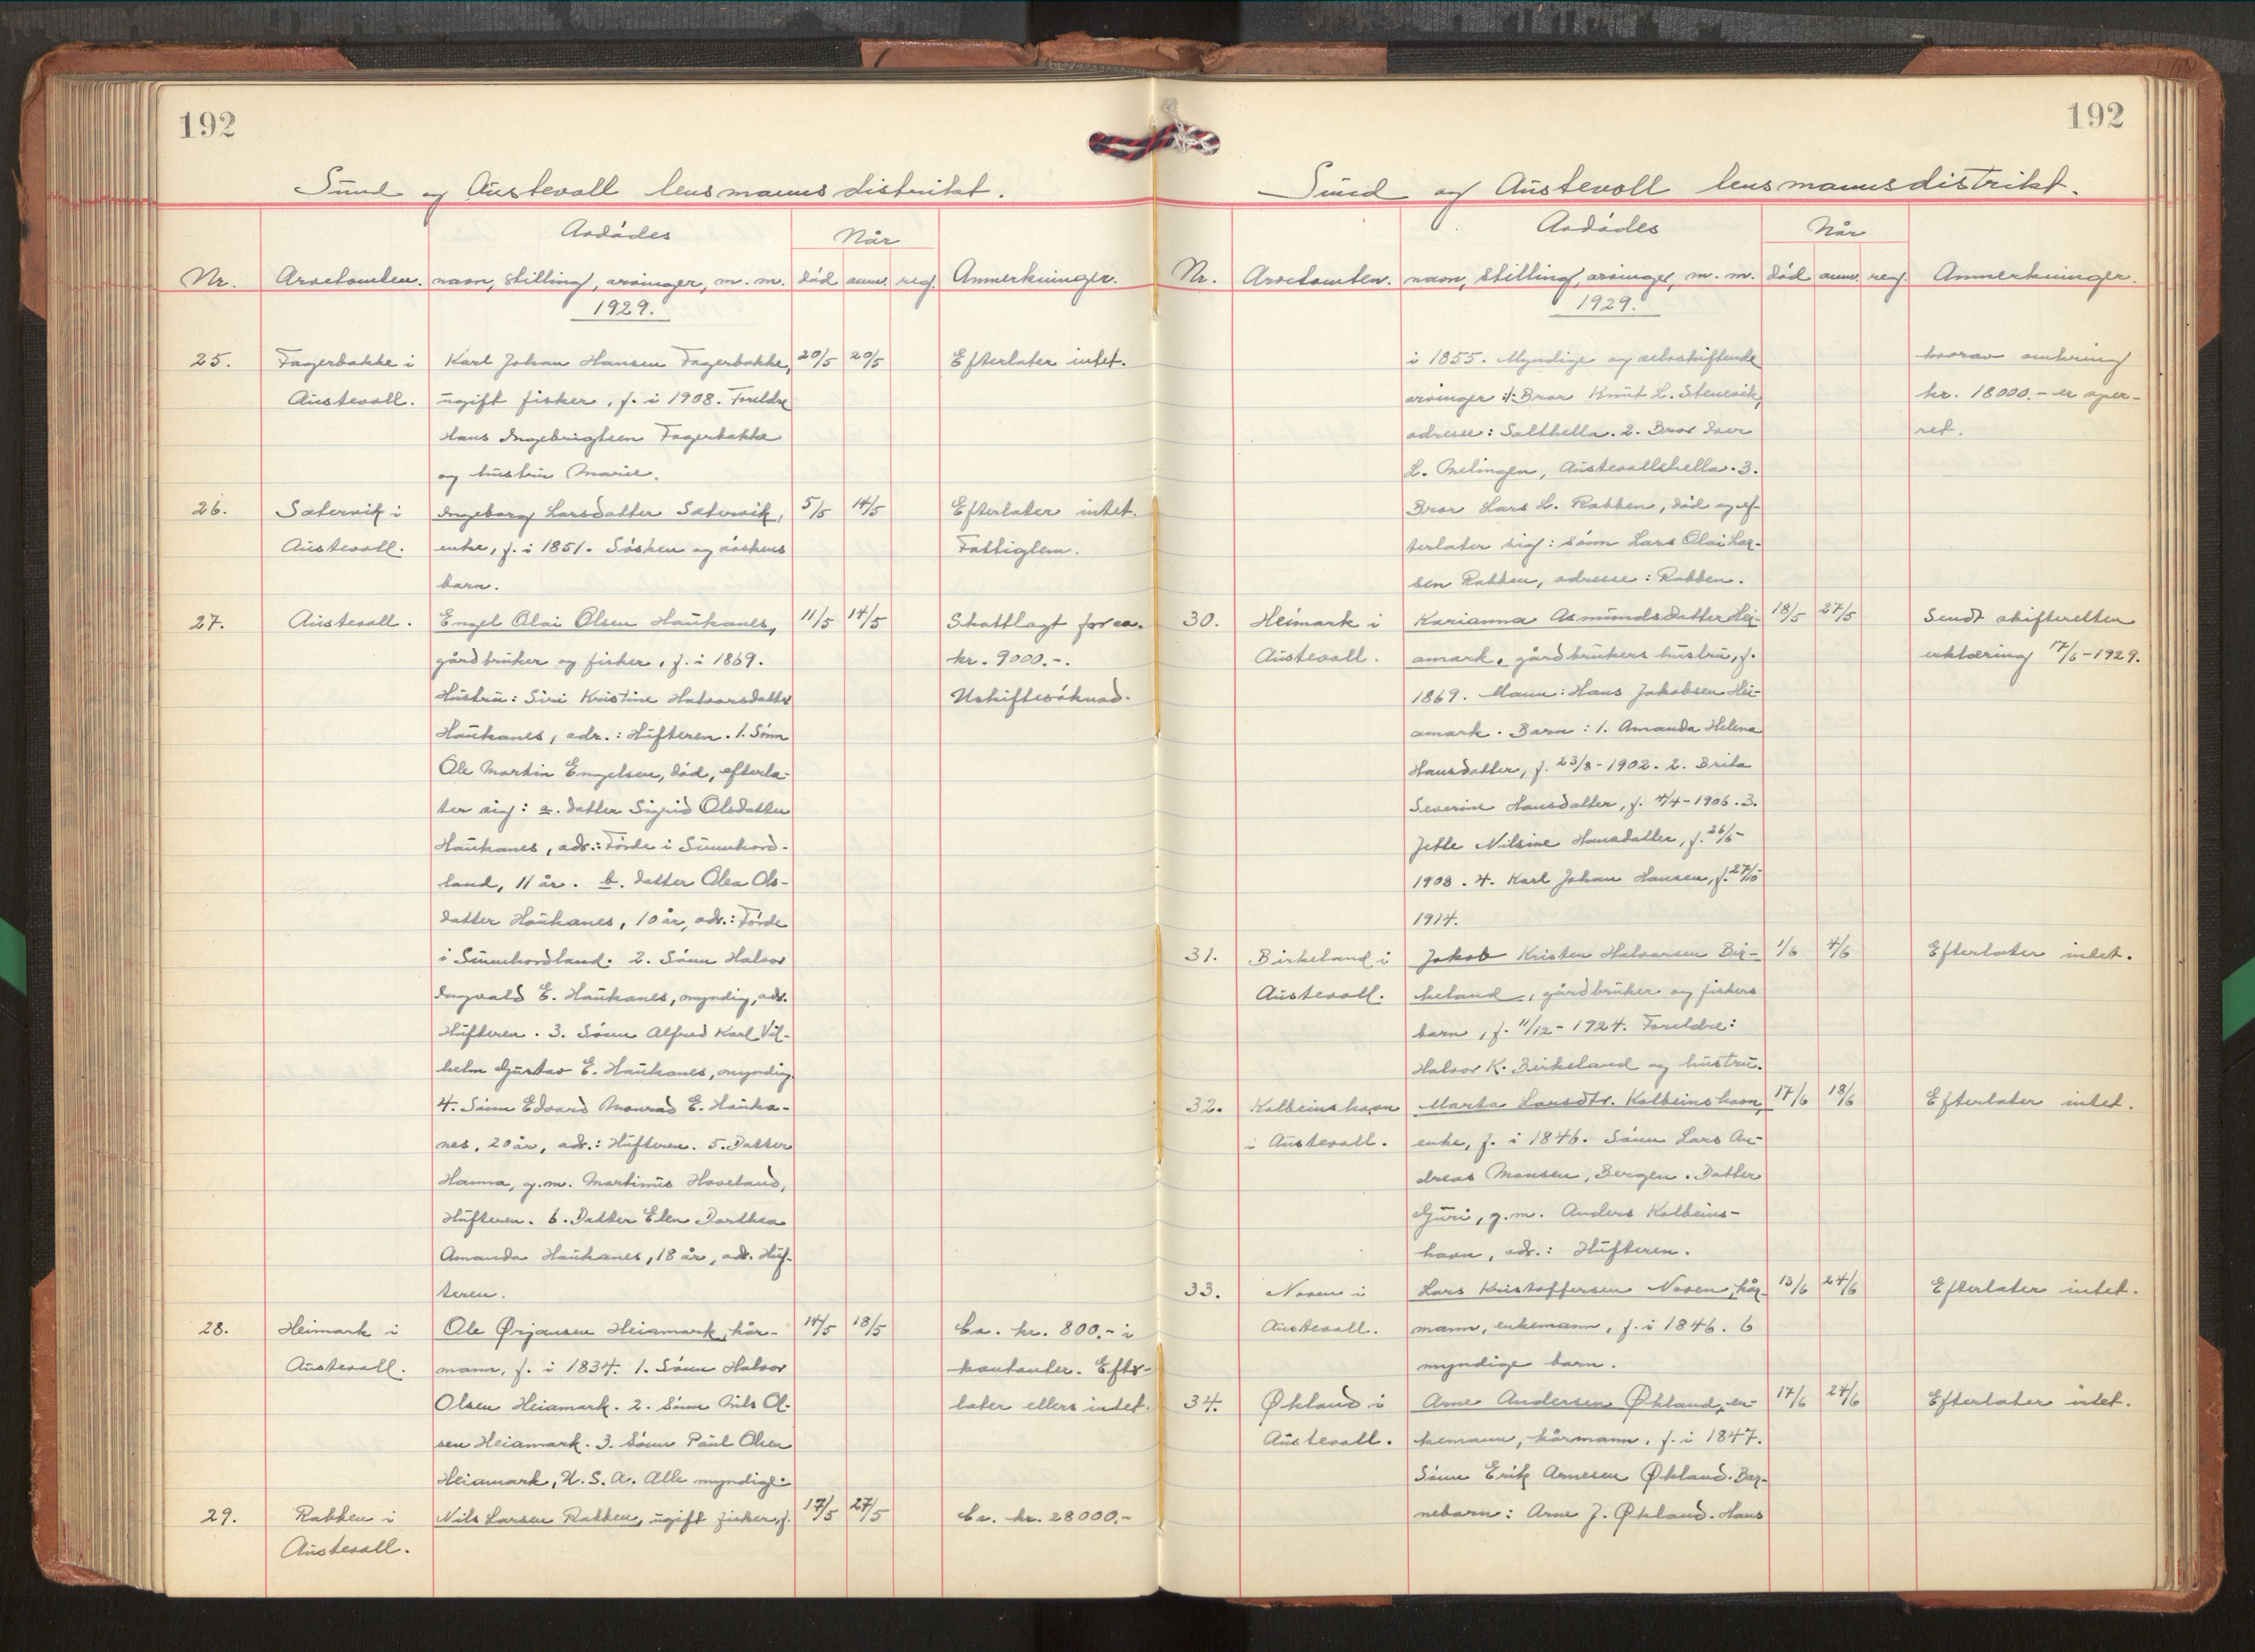 192
Sund og Austevoll lensmannsdistrikt.
Avdødes
Når
Nr. Arvetomten. navn, stilling, arvinger, m. m. død anm. reg. Anmerkninger.
1929.
25. Fagerbakke i Karl Johan Hansen Fagerbakke, 20/5 20/5 Efterlater intet.
Austevoll. ugift fisker, f. i 1908. Foreldre
Hans Ingebrigtsen Fagerbakke
og hustru Marie.
26. Sætervik i Ingeborg Larsdatter Sætervik, 5/5 14/5 Efterlater intet.
Austevoll. enke, f. i 1851. Søsken og søskens Fattiglem.
barn.
27. Austevoll. Engel Olai Olsen Haukanes, 11/5 14/5 Skattlagt for ca.
gårdbruker og fisker, f. i 1869. kr. 9000.-.
Hustru: Siri Kristine Halvorsdatter Uskiftesøknad.
Haukanes, adr.: Hufteren. 1. Sønn
Ole Martin Engelsen, død, efterla-
ter sig: a. datter Sigrid Olsdatter
Haukanes, adr.: Førde i Sunnhord-
land, 11 år. b. datter Olea Ols-
datter Haukanes, 10 år, adr.: Førde
i Sunnhordland. 2. Sønn Halvor
Ingvald E. Haukanes, myndig, adr.
Hufteren. 3. Sønn Alfred Karl Vil-
helm Gustav E. Haukanes, myndig.
4. Sønn Edvard Monrad E. Hauka-
nes, 20 år, adr.: Hufteren. 5. Datter
Hanna, g.m. Martinus Hoveland,
Hufteren. 6. Datter Elen Dorthea
Amanda Haukanes, 18 år, adr. Huf-
teren.
28. Heimark i Ole Ørjansen Heiamark, kår- 14/5 18/5 Ca. kr. 800.- i
Austevoll. mann, f. i 1834. 1. Sønn Halvor kontanter. Efter-
Olsen Heiamark. 2. Sønn Nils Ol- later ellers intet.
sen Heiamark. 3. Sønn Paul Olsen
Heiamark, U. S. A. Alle myndige.
29. Rabben i Nils Larsen Rabben, ugift fisker, f. 17/5 27/5 Ca. kr. 28000.-
Austevoll.
192
Sund og Austevoll lensmannsdistrikt.
Avdødes
Når
Nr. Arvetomten. navn, stilling, arvinger, m. m. død anm. reg. Anmerkninger.
1929.
i 1855. Myndige og selvskiftende hvorav omkring
arvinger: 1. Bror Knut L. Stenevik, kr. 18000.- er sper-
adresse: Salthella. 2. Bror Iver ret.
L. Melingen, Austevollshella. 3.
Bror Lars L. Rabben, død og ef-
terlater sig: sønn Lars Olai Lar-
sen Rabben, adresse: Rabben.
30. Heimark i Karianna Asmundsdatter Hei- 18/5 27/5 Sendt skifteretten
Austevoll. amark, gårdbrukers hustru, f. erklæring 17/6-1929.
1869. Mann: Hans Jakobsen Hei-
amark. Barn: 1. Amanda Helena
Hansdatter, f. 23/8-1902. 2. Brita
Severine Hansdatter, f. 4/4-1906. 3.
Jette Nilsine Hansdatter, f. 26/5-
1908. 4. Karl Johan Hansen, f. 27/10
1914.
31. Birkeland i Jakob Kristen Halvorsen Bir- 1/6 4/6 Efterlater intet.
Austevoll. keland, gårdbruker og fiskers
barn, f. 11/12-1924. Foreldre:
Halvor K. Birkeland og hustru.
32. Kolbeinshavn Marta Larsdtr. Kolbeinshavn, 17/6 18/6 Efterlater intet.
i Austevoll. enke, f. i 1846. Sønn Lars An-
dreas Monsen, Bergen. Datter
Guri, g.m. Anders Kolbeins-
havn, adr.: Hufteren.
33. Noven i Lars Kristoffersen Noven, kår- 13/6 24/6 Efterlater intet.
Austevoll. mann, enkemann, f. i 1846. 6
myndige barn.
34. Økland i Arne Andersen Økland, en- 17/6 24/6 Efterlater intet.
Austevoll. kemann, kårmann, f. i 1847.
Sønn Erik Arnesen Økland. Bar-
nebarn: Arne J. Økland. Hans